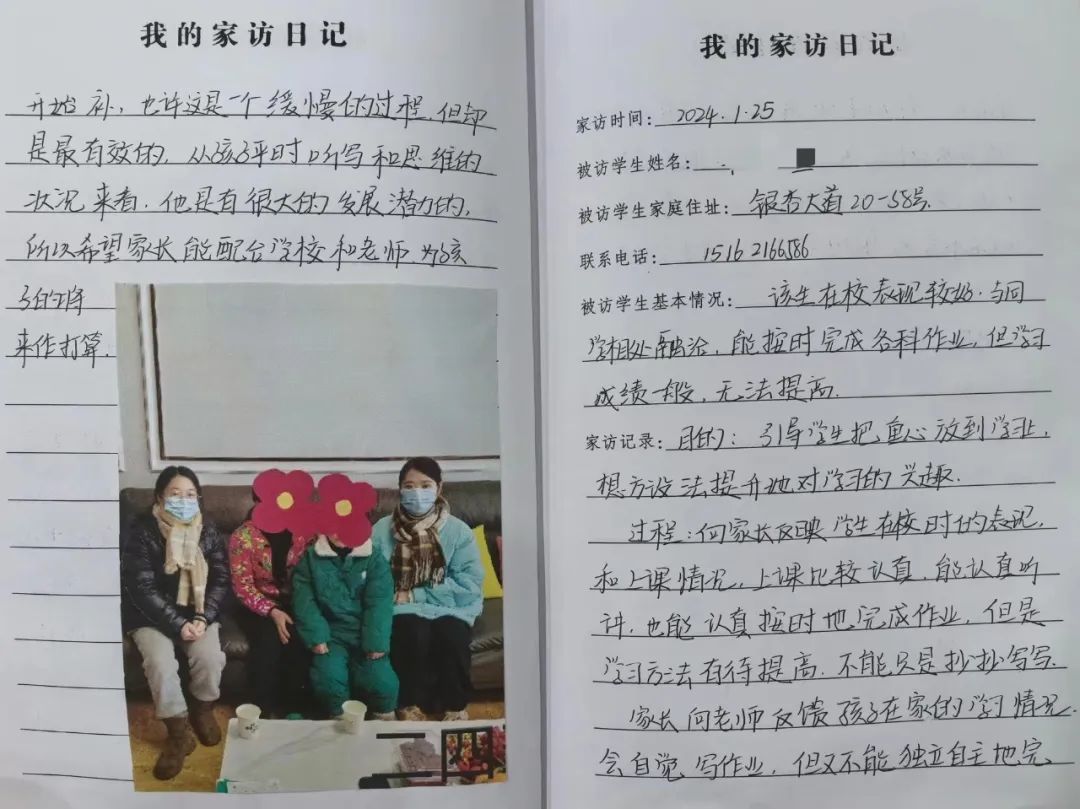 我的家访日记
开始补，也许这是一个缓慢的过程，但却
是最有效的，从孩子平时听写和思维的
状况来看，他是有很大的发展潜力的，
所以希望家长能配合学校和老师为孩
子的将
来作打算.
我的家访日记
家访时间：2024.1.25
被访学生姓名：
被访学生家庭住址：银杏大道20-58号.
联系电话：15162166586
被访学生基本情况：该生在校表现较好.与同
学相处融洽，能按时完成各科作业，但学习
成绩一般，无法提高.
家访记录：目的：引导学生把重心放到学习上，
想方设法提升她对学习的兴趣.
过程：向家长反映学生在校时的表现，
和上课情况，上课比较认真，能认真听
讲，也能认真按时地完成作业，但是
学习方法有待提高.不能只是抄抄写写.
家长向老师反馈孩子在家的学习情况.
会自觉写作业，但又不能独立自主地完